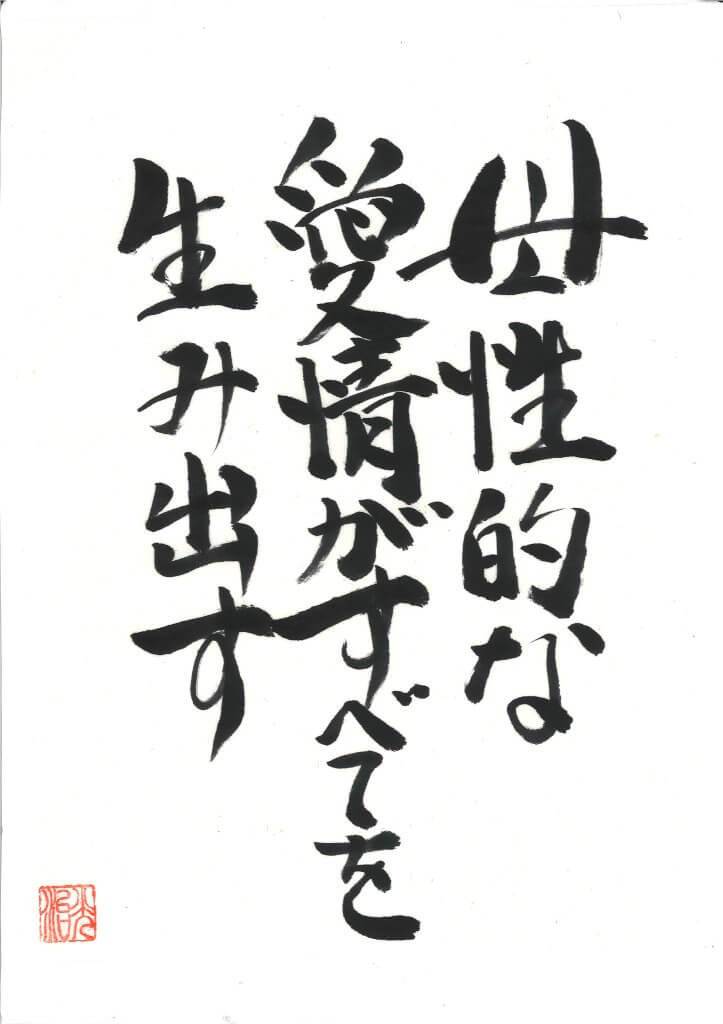 母性的な
愛情がすべてを
生み出す